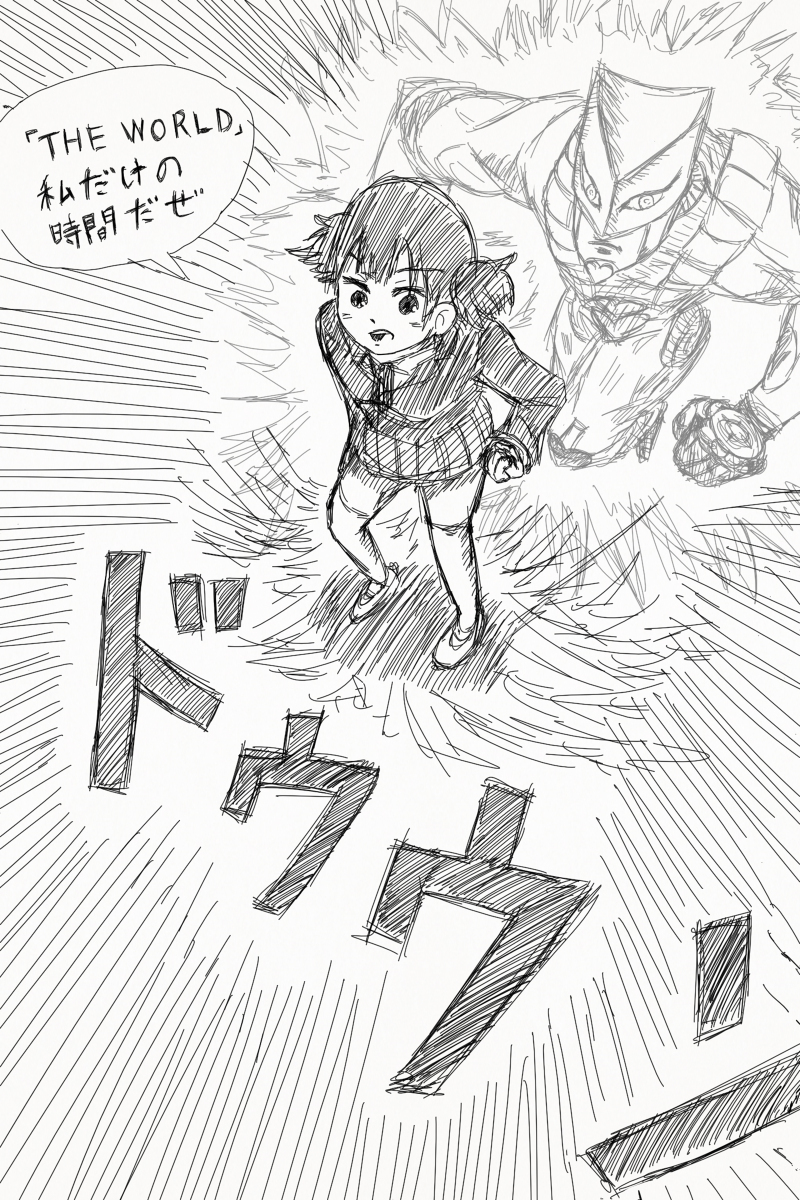 「THE WORLD」
私だけの
時間だぜ
ドゥウン